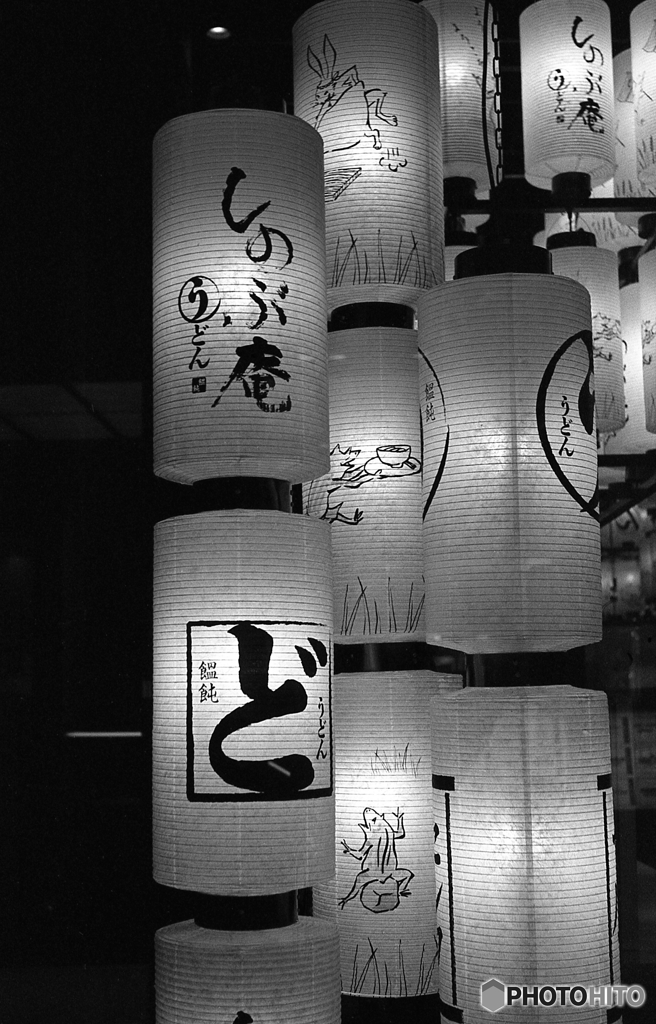 しのぶ庵
うどん
しのぶ庵
うどん
饂飩
うどん
ど
うどん
饂飩
PHOTOHITO